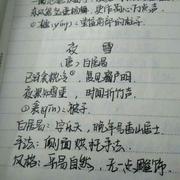 夜 雪
(唐)白居易
已讶衾枕冷①,复见窗户明。
夜深知雪重,时闻折竹声。
①衾(qīn):被子。
白居易:字乐天,晚年号香山居士。
手法:侧面烘托手法
风格:平易自然,无一点雕饰。